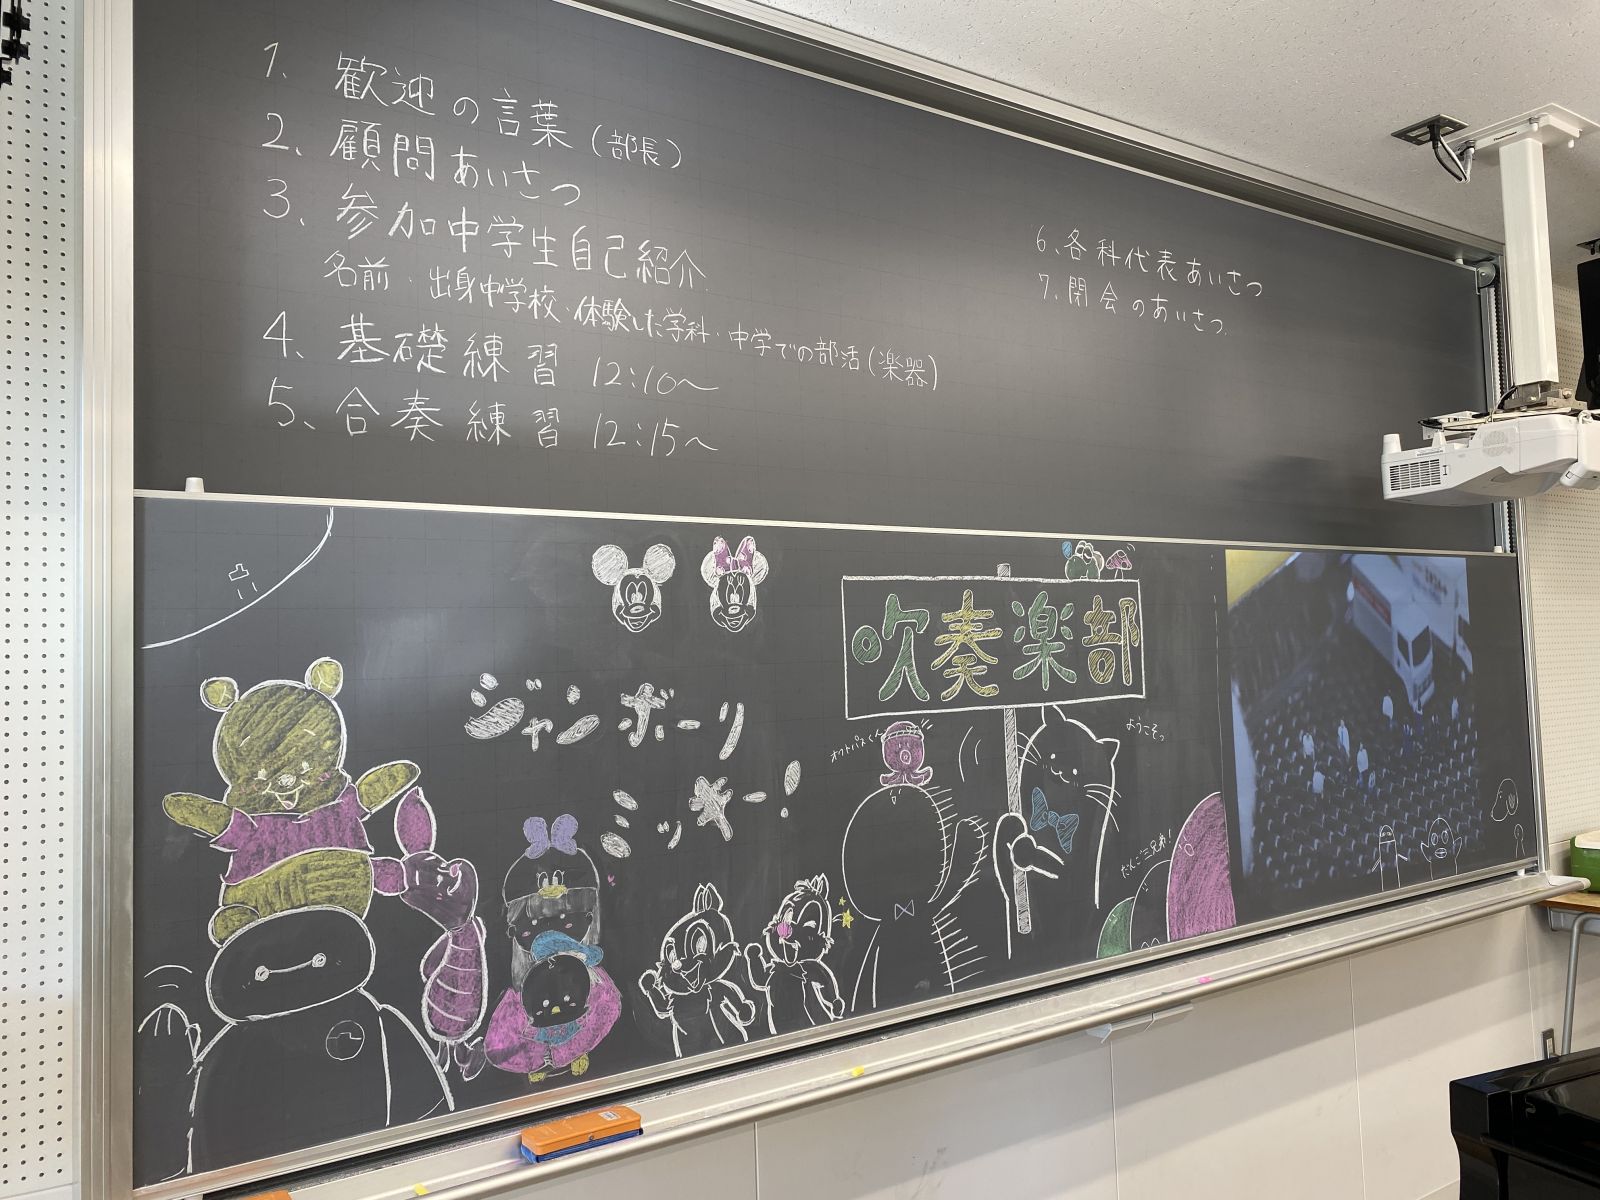 1、歓迎の言葉（部長）
2、顧問あいさつ
3、参加中学生自己紹介
名前・出身中学校・体験した学科・中学での部活（楽器）
4、基礎練習 12:10〜
5、合奏練習 12:15〜
6、各科代表あいさつ
7、閉会のあいさつ
吹奏楽部
ジャンボーリ
ミッキー！
オクトパスくん
ようこそっ
だんご三兄弟！